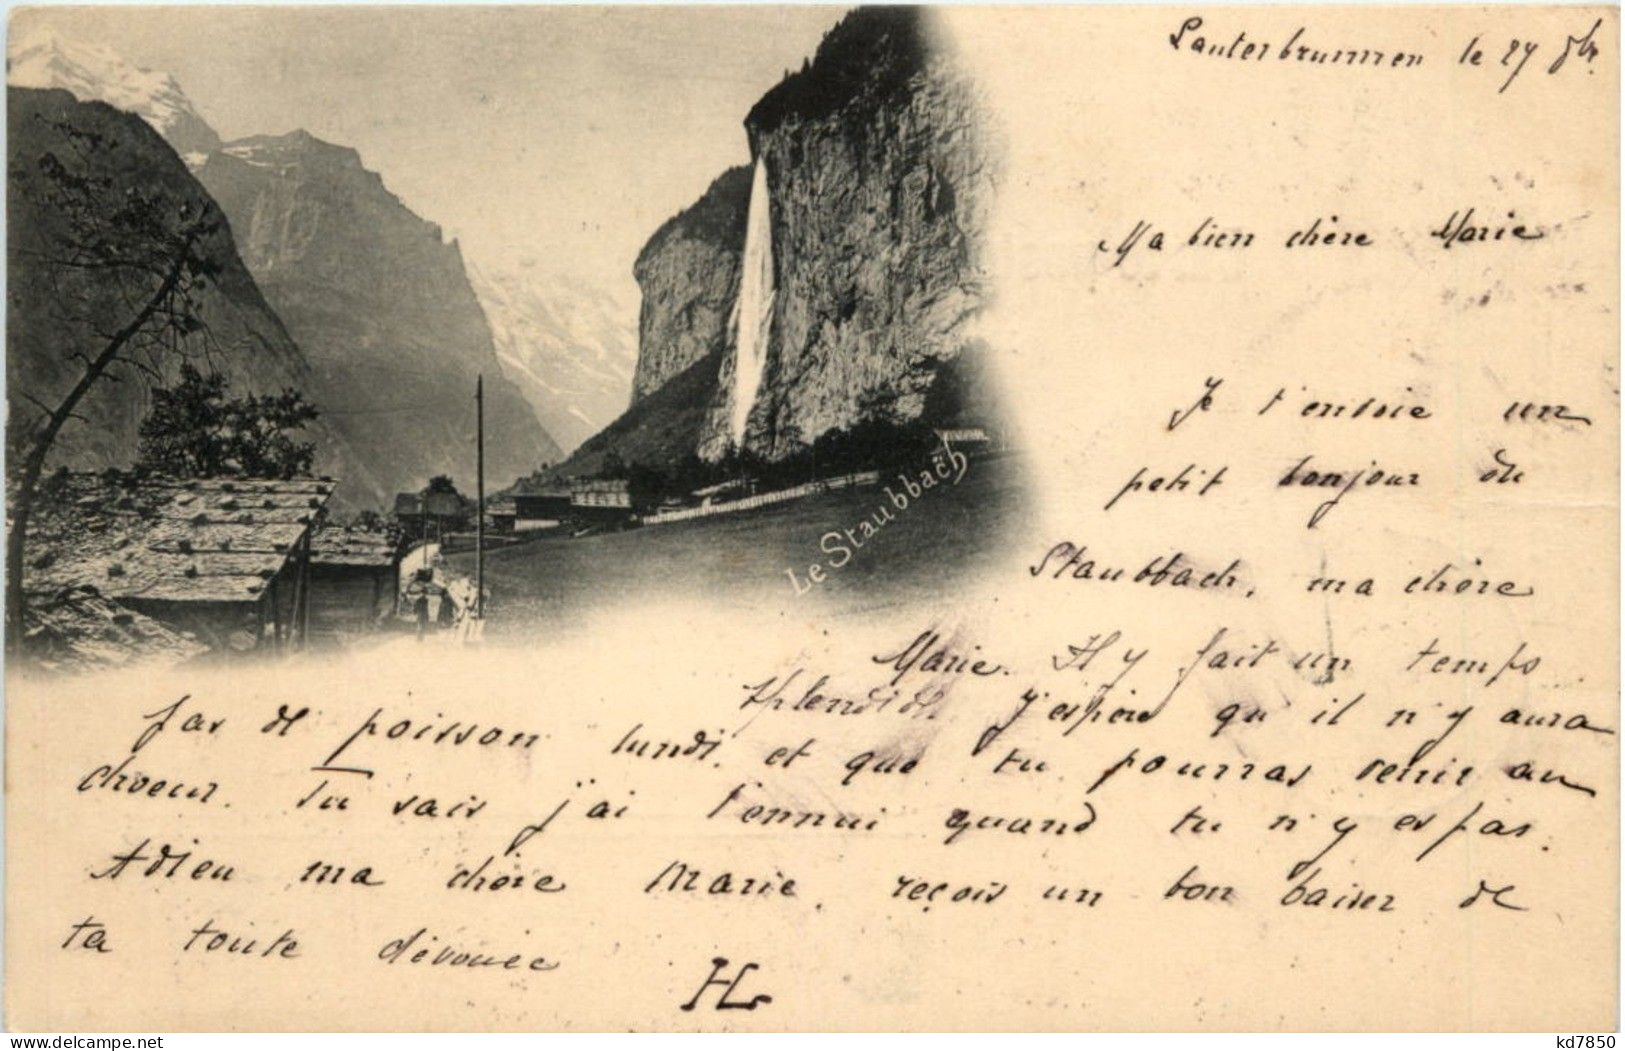 Lauterbrunnen le 27 8br.
Ma bien chère Marie
Je t'envoie un
petit bonjour du
Staubbach, ma chère
Marie. Il y fait un temps
splendide. J'espère qu'il n'y aura
pas de poisson lundi, et que tu pourras venir au
choeur. Tu sais j'ai l'ennui quand tu n'y es pas.
Adieu ma chère Marie, reçois un bon baiser de
ta toute dévouée
H
Le Staubbach
www.delcampe.net
kd7850